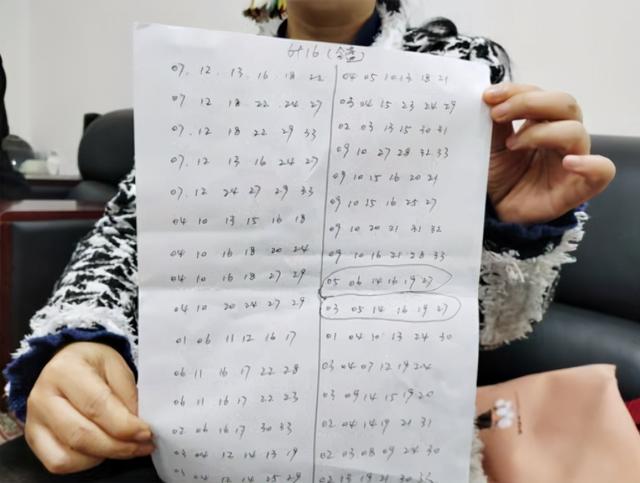 07. 12. 13. 16. 18 22
07 12 18 22 24 27
07. 12 18 22 29 33
07. 12 13 16 24 27
07. 12 24 27 29 33
04 10 13 15 16 18
04 10 16 18 20 24
04 10 16 18 27 29
04 10 20 24 27 29
01 06 11 12 16 17
06 11 16 17 22 28
06 11 16 17 22 23
02 06 16 17 30 33
03 04 12 14 13 19
04 12 14 25 29
04 05 10 13 18 21
03 04 15 23 24 29
02 03 13 15 30 31
09 10 27 28 32 33
09 10 15 16 20 21
09 10 15 16 25 27
09 10 20 21 31 32
09 10 16 21 28 33
05 06 14 16 19 27
03 05 14 16 19 27
01 04 10 13 24 30
03 04 07 12 19 24
03 09 14 15 19 20
02 04 14 19 21 31
02 03 08 09 24 30
02 13 19 21 30